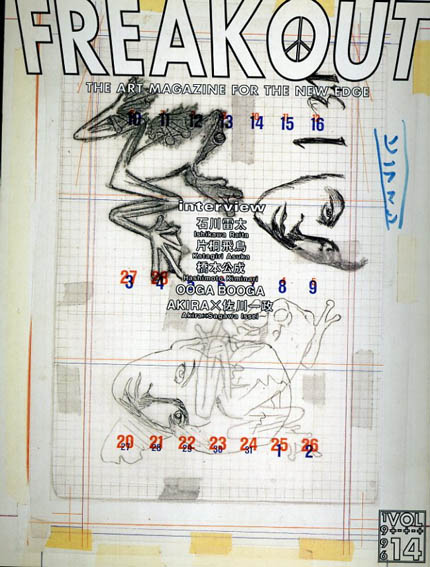 FREAKOUT
THE ART MAGAZINE FOR THE NEW EDGE
10 11 12 13 14 15 16
interview
石川雷太
Ishikawa Raita
片桐飛鳥
Katagiri Asuka
橋本公成
Hashimoto Kiminari
27 28
3 4 5 6 7 8 9
OOGA BOOGA
AKIRA×佐川一政
Akira×Sagawa Issei
20 21 22 23 24 25 26
27 28 29 30 31 1 2
1996
VOL
14